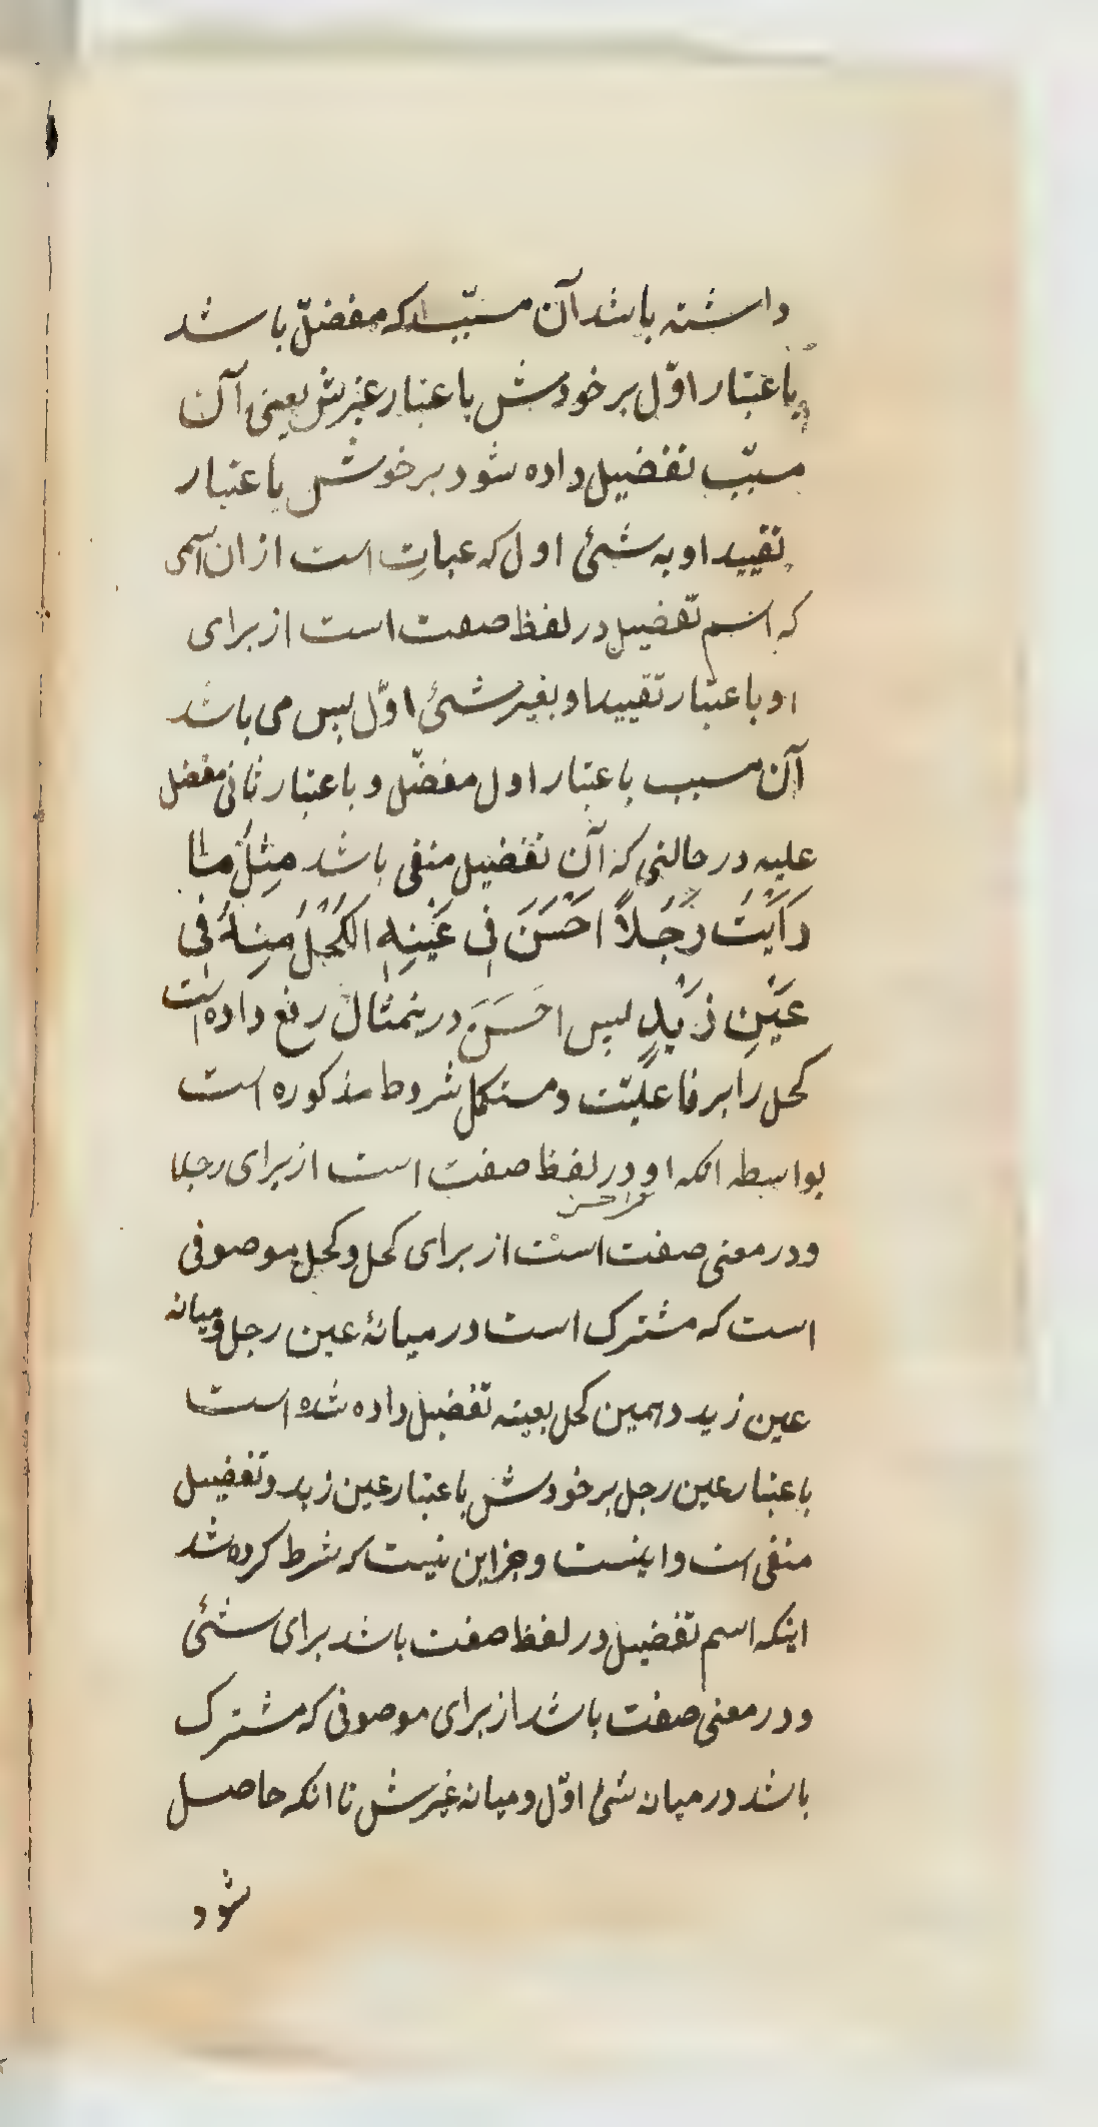 داشته باشد آن مسبّب که مفضلّ باشد
باعتبار اوّل بر خودش باعتبار غیرش یعنی آن
مسبّب تفضیل داده شود بر خوش باعتبار
تقیید او به شئ اول که عبارت است از ان اسمی
که اسم تفضیل در لفظ صفت است از برای
او باعتبار تقیید او بغیر شئ اوّل پس می باشد
آن مسبب باعتبار اول مفضّل و باعتبار ثانی مفضل
علیه در حالتی که آن تفضیل منفی باشد مِثلُ ما
رَاَیْتُ رَجُلاً اَحْسَنَ فی عَیْنِهِ الکُحْلُ مِنهُ فی
عَیْنِ زَیْدٍ پس احَسَنَ درینمثال رفع داده است
کحل را بر فاعلیّت و مستکمل شروط مذکوره است
بواسطه انکه او در لفظ صفت است از برای رجلا
و در معنی صفت است از برای کحل و کحل موصوفی
است که مشترک است در میانهٔ عین رجل و میانه
عین زید و همین کحل بعینه تفضیل داده شده است
باعتبار عین رجل بر خودش باعتبار عین زید و تفضیل
منفی است و اینست و جز این نیست که شرط کرده شد
اینکه اسم تفضیل در لفظ صفت باشد برای شئ
و در معنی صفت باشد از برای موصوفی که مشترک
باشد در میان شئ اوّل و میانه غیرش تا انکه حاصل
شود